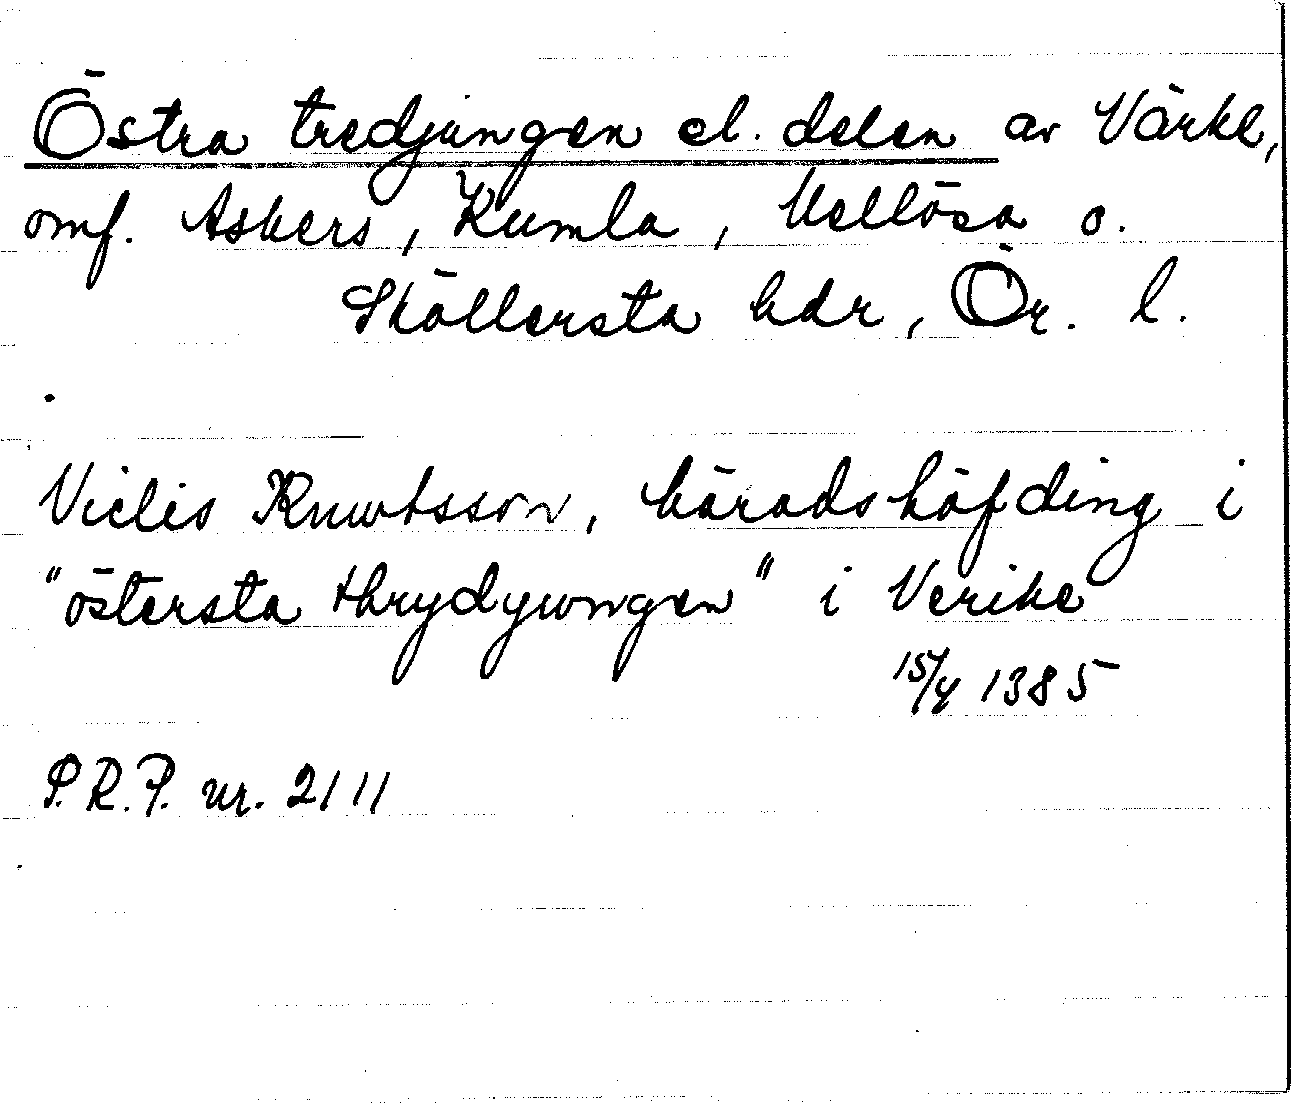 Östra tredjungen el. delen av Värke,
omf. Askers, Kumla, Mellösa o.
Sköllersta hdr, Ör. l.
Niclis Knwtsson, häradshöfding i
"östersta thrydywngen" i Nerike
15/4 1385
P.R.P. nr. 2111